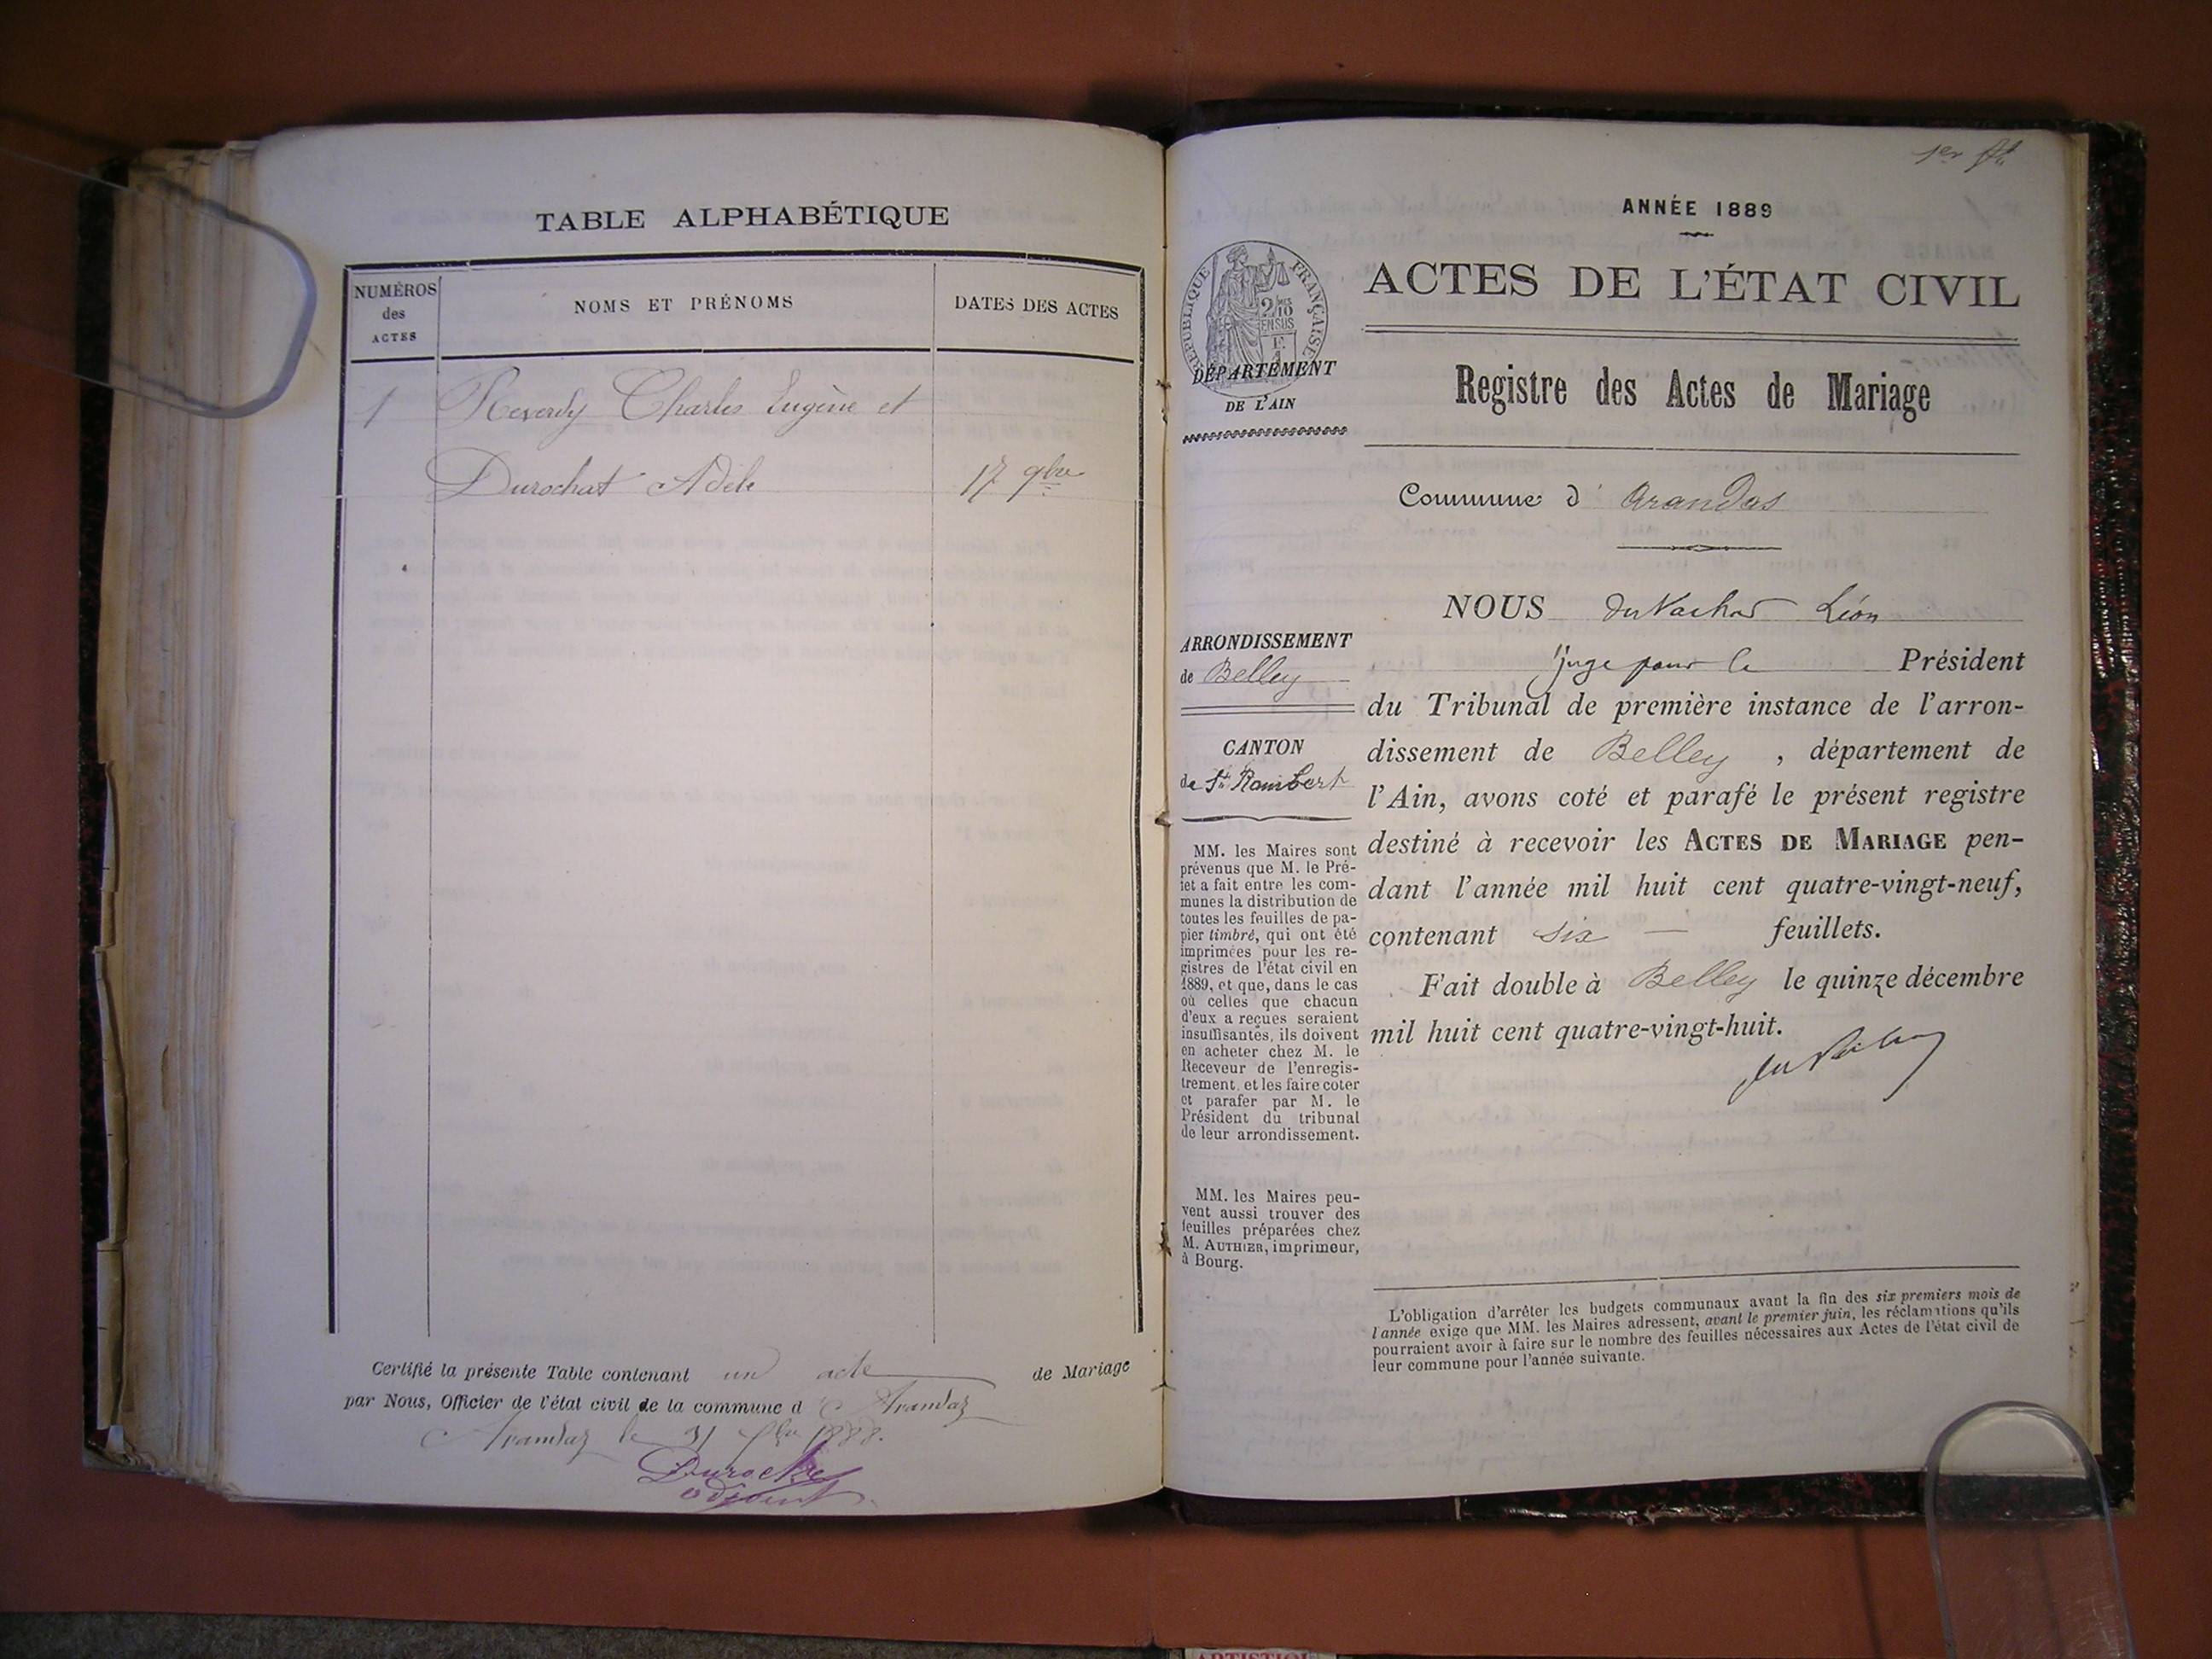 TABLE ALPHABÉTIQUE
NUMÉROS
des
ACTES
NOMS ET PRÉNOMS
DATES DES ACTES
1 Reverdy Charles Eugène et
Durochat Adèle 17 9bre
Certifié la présente Table contenant un acte de Mariage
par Nous, Officier de l'état civil de la commune d'Arandaz
Arandaz le 31 1888.
adjoint
1er ft
ANNÉE 1889
ACTES DE L'ÉTAT CIVIL
RÉPUBLIQUE FRANÇAISE
2/10
EN SUS
DÉPARTEMENT
DE L'AIN
Registre des Actes de Mariage
Commune d' Arandas
NOUS du Vachat Léon
juge pour le Président
du Tribunal de première instance de l'arron-
dissement de Belley, département de
l'Ain, avons coté et parafé le présent registre
destiné à recevoir les ACTES DE MARIAGE pen-
dant l'année mil huit cent quatre-vingt-neuf,
contenant six — feuillets.
Fait double à Belley le quinze décembre
mil huit cent quatre-vingt-huit.
ARRONDISSEMENT
de Belley
CANTON
de St Rambert
MM. les Maires sont
prévenus que M. le Pré-
fet a fait entre les com-
munes la distribution de
toutes les feuilles de pa-
pier timbré, qui ont été
imprimées pour les re-
gistres de l'état civil en
1889, et que, dans le cas
où celles que chacun
d'eux a reçues seraient
insuffisantes, ils doivent
en acheter chez M. le
Receveur de l'enregis-
trement, et les faire coter
et parafer par M. le
Président du tribunal
de leur arrondissement.
MM. les Maires peu-
vent aussi trouver des
feuilles préparées chez
M. AUTHIER, imprimeur,
à Bourg.
L'obligation d'arrêter les budgets communaux avant la fin des six premiers mois de
l'année exige que MM. les Maires adressent, avant le premier juin, les réclamations qu'ils
pourraient avoir à faire sur le nombre des feuilles nécessaires aux Actes de l'état civil de
leur commune pour l'année suivante.